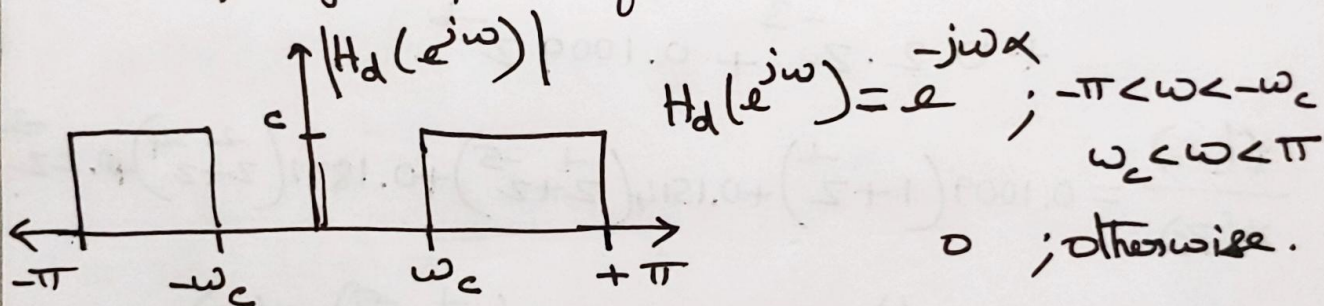 |H_d(e^{jω})|
c
-π -ω_c ω_c +π
H_d(e^{jω}) = e^{-jωα} ; -π<ω<-ω_c
ω_c<ω<π
0 ; otherwise.